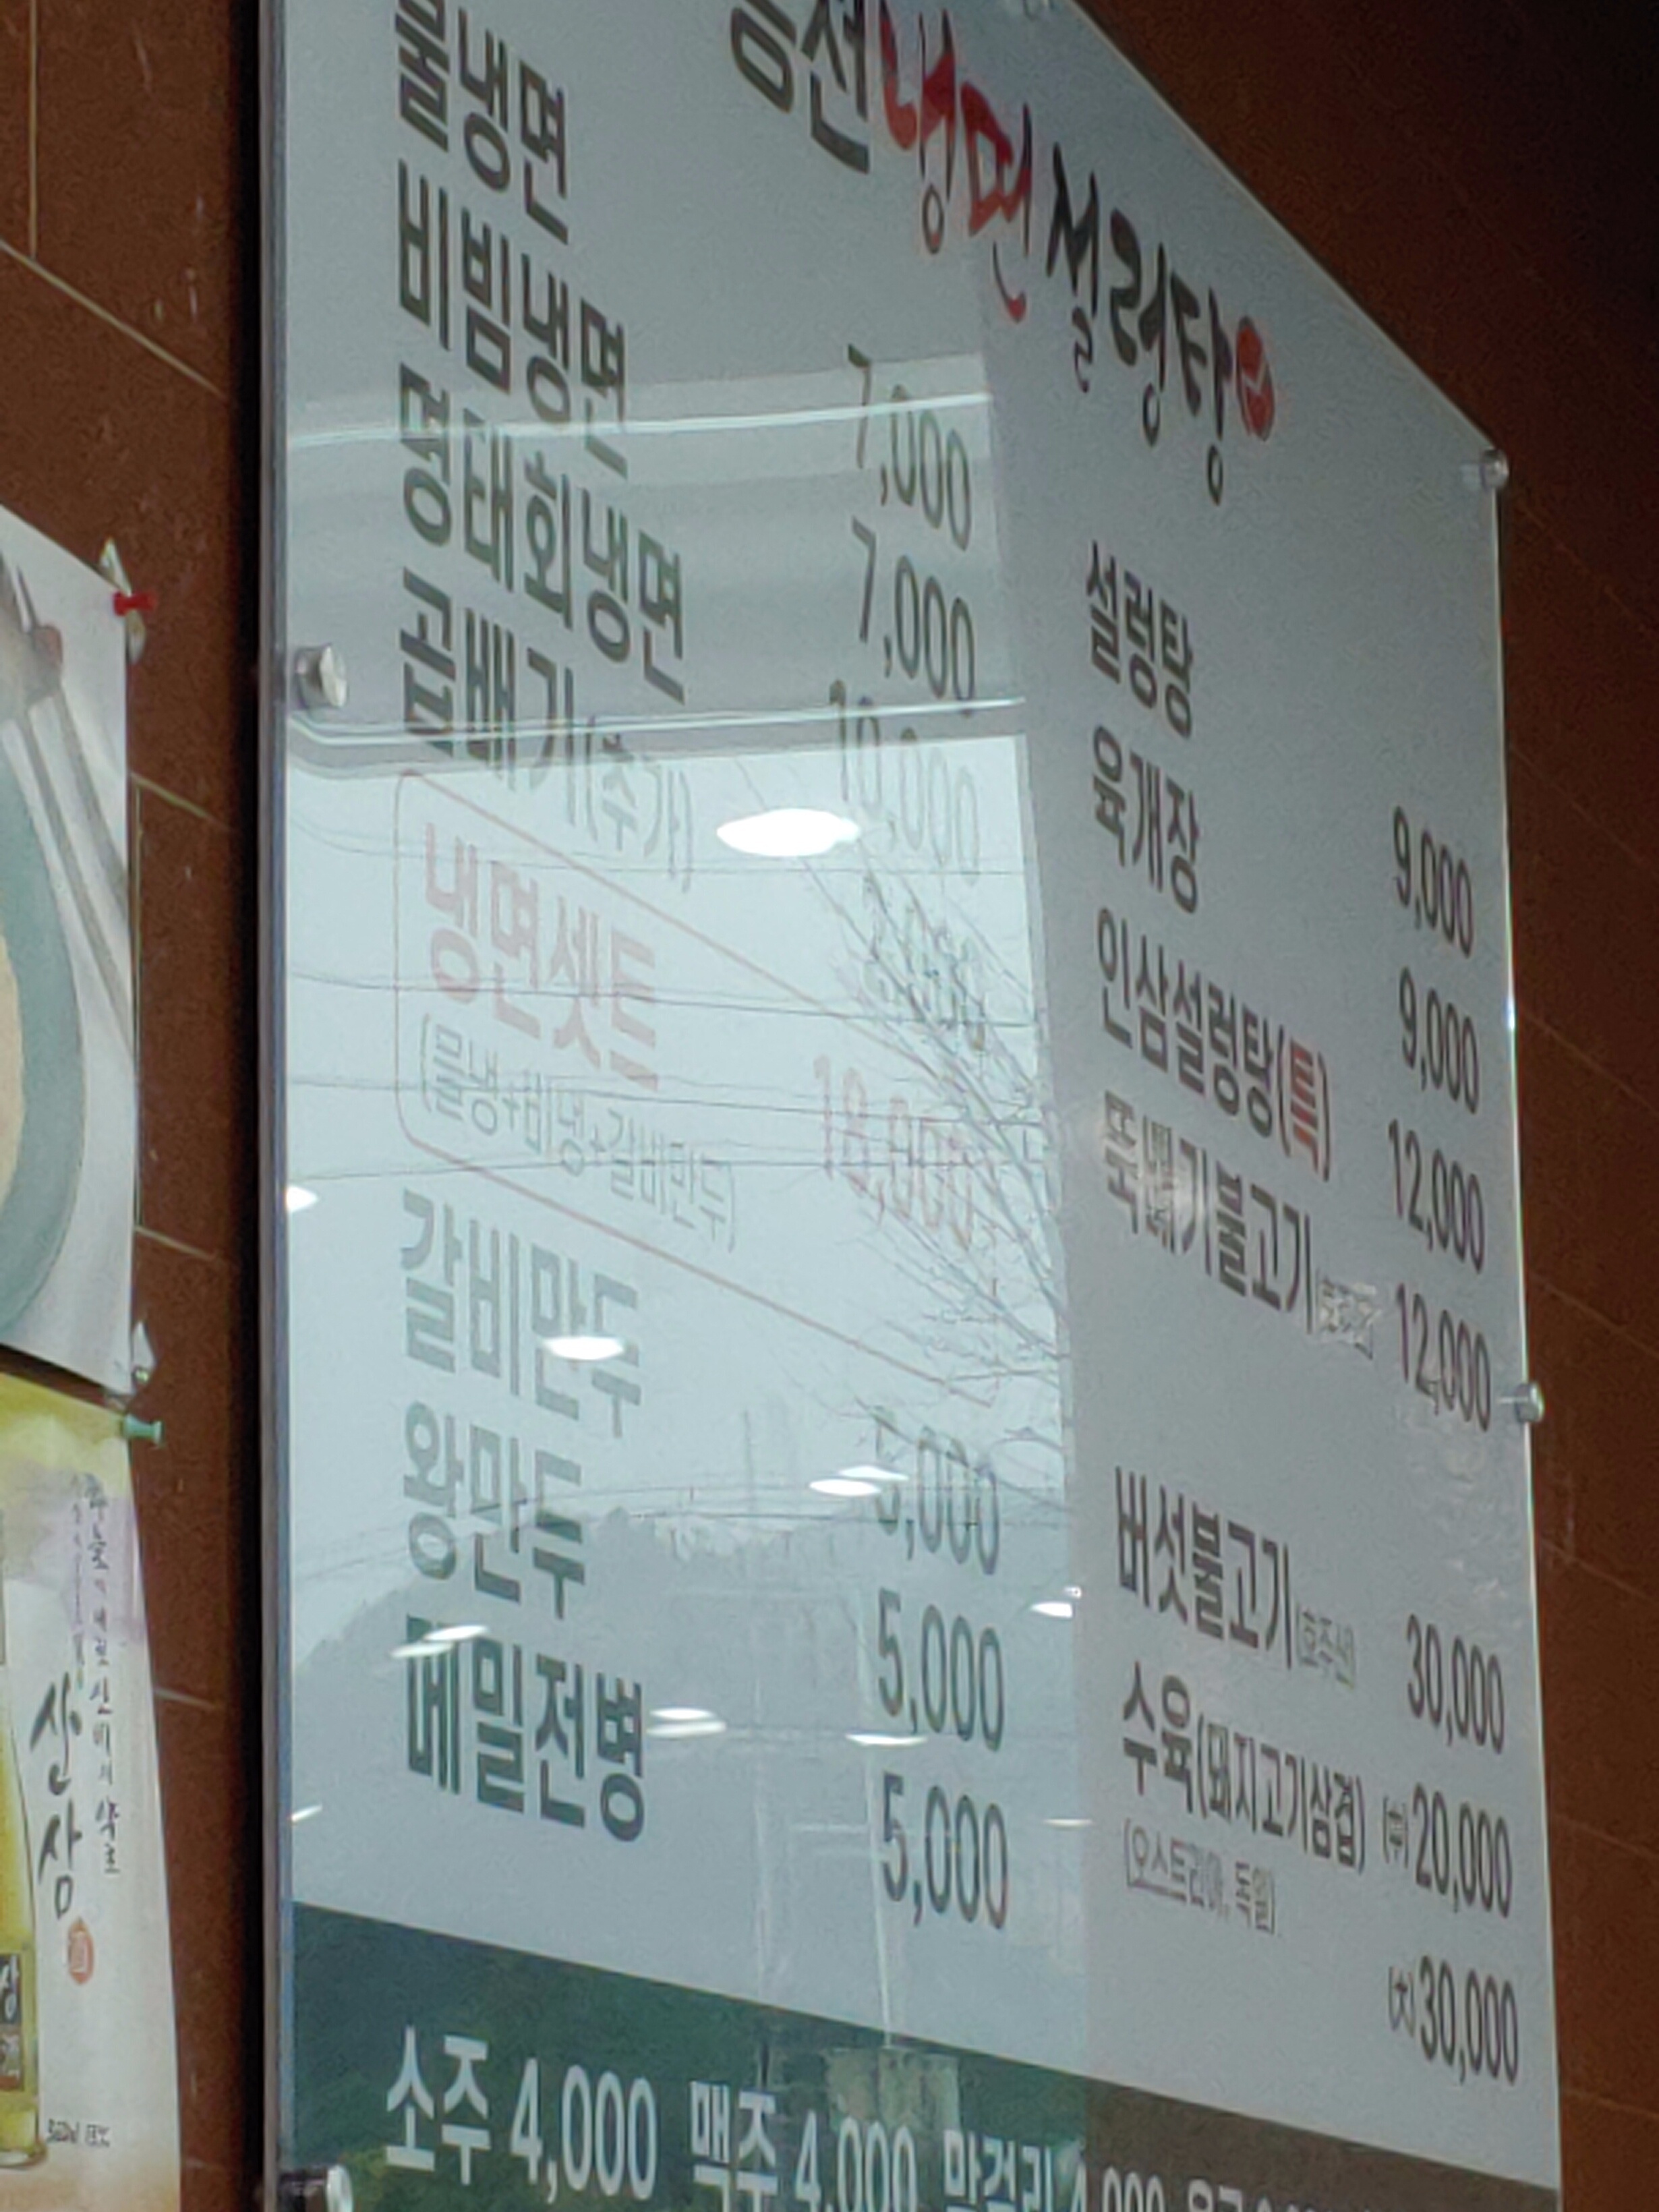 냉면설렁탕
물냉면 7,000
비빔냉면 7,000
명태회냉면 10,000
곱빼기(추가)
냉면셋트 18,000
(물냉+비냉+갈비만두)
갈비만두 5,000
왕만두 5,000
메밀전병 5,000
설렁탕 9,000
육개장 9,000
인삼설렁탕(특) 12,000
뚝배기불고기 12,000
버섯불고기(호주산) 30,000
수육(돼지고기삼겹) (中)20,000
(오스트리아, 독일)
(大)30,000
소주 4,000 맥주 4,000 막걸리
산삼